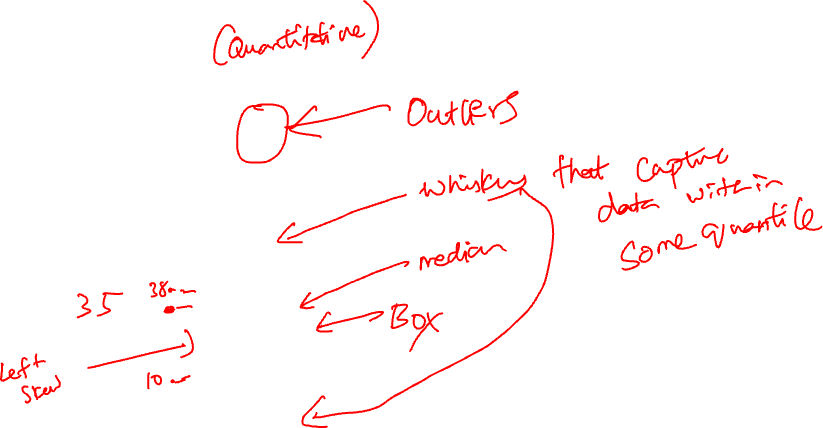 (Quantitative)
Outliers
whiskers that capture
data within
some quantile
median
35 38
Box
Left
Skew
10